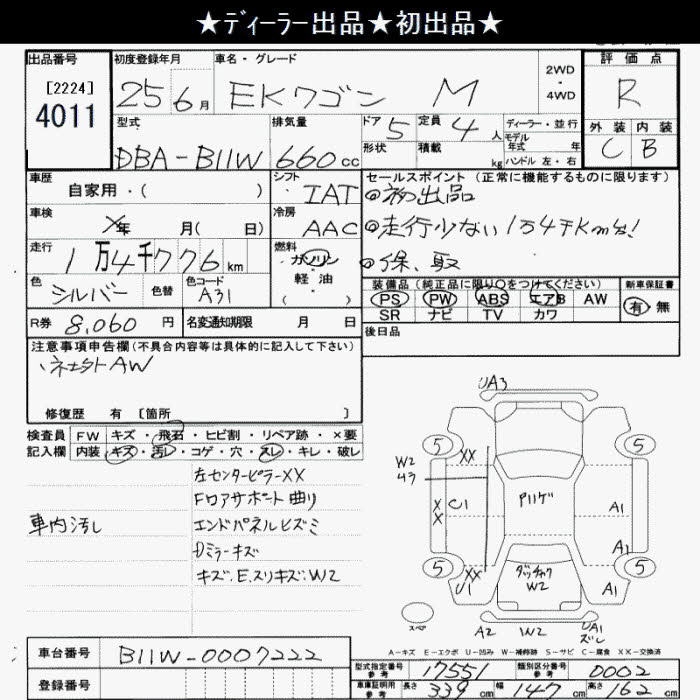 ★ディーラー出品★初出品★
出品番号 初度登録年月 車名・グレード 2WD・4WD 評価点
[2224] 4011 25 6月 EKワゴン M R
型式 排気量 ドア 5 定員 4人 ディーラー・並行 外装 内装
モデル年式 年
DBA-B11W 660cc 形状 積載 kg ハンドル 左・右 C B
車歴 シフト セールスポイント (正常に機能するものに限ります)
自家用・( ) IAT ◎初出品
車検 冷房
×年 月( 日) AAC ◎走行少ない1万4千km台!
走行 燃料
1万4千776km ガソリン ◎保、取
色 色替 色コード 軽油 装備品(純正品に限り○をつけてください) 新車保証書
シルバー A31 ( ) PS PW ABS エアB AW 有・無
SR ナビ TV カワ
R券 8,060円 名変通知期限 月 日 後日品
注意事項申告欄(不具合内容等は具体的に記入して下さい)
・社外AW
修復歴 有 [箇所 ]
検査員記入欄 FW キズ・飛石・ヒビ割・リペア跡・×要
内装 キズ・汚レ・コゲ・穴・スレ・キレ・破レ
左センターピラーXX
Fロアサポート曲り
車内汚し エンドパネルヒズミ
Dミラーキズ
キズ.E.スリキズ:W2
UA3
5 5
XX
W2
C1 A1
X
X
A1
5 5
XX W2
U1 A1
スペア A2 W2 UA1
A-キズ E-エクボ U-凹み W-補修跡 S-サビ C-腐食 XX-交換済
車台番号 B11W-0007222
登録番号
型式指定番号 参考 17551 類別区分番号 参考 0002
車庫証明用 参考 長さ 339cm 幅 147cm 高さ 162cm